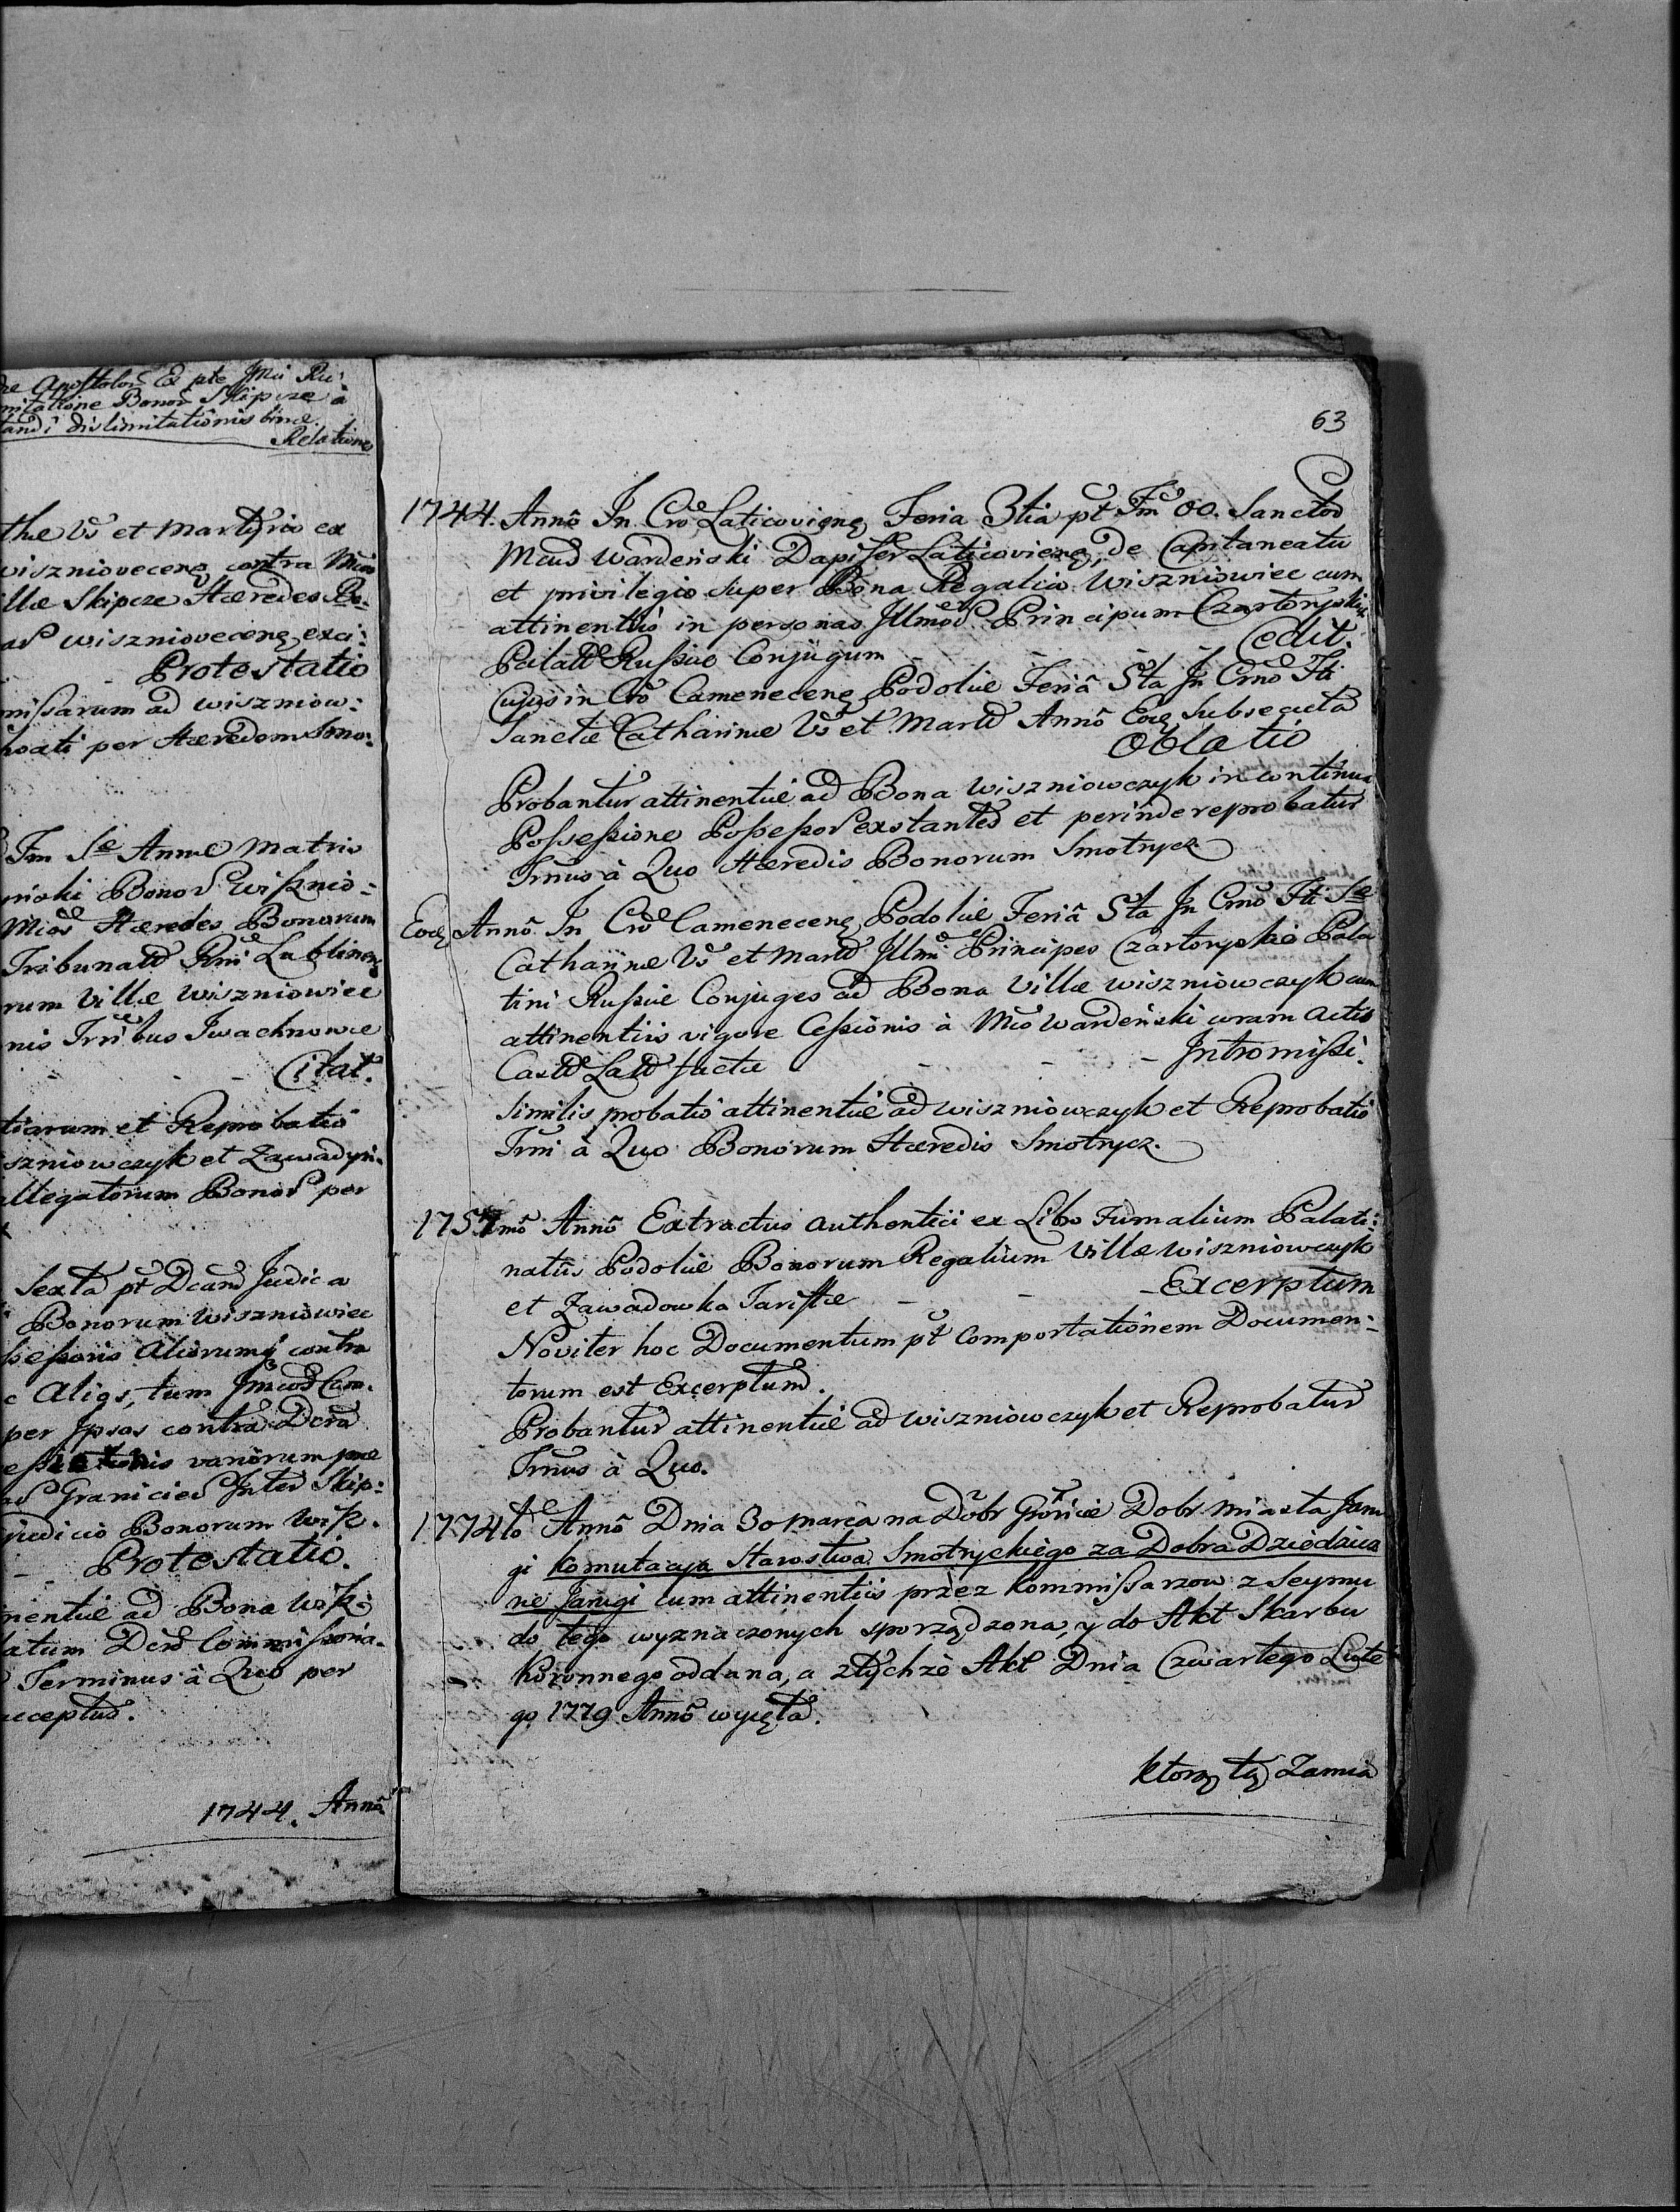 ne Apostolor Ex pte Mci Ru:
mitatione Bonor Skipcze à
tandi dislimitationis binæ.
Relatione
thæ Vs et Martyris ex
viszniovecenę contra Mcos
illæ Skipcze Hæredes Bo:
ad wiszniovecenę exci:
Protestatio
missarum ad wiszniow:
hoati per Hæredem Smo:
Fm Se Annæ Matris
niski Bonor Wisznio:
Mcos Hæredes Bonorum
Tribunald Rni Lublinen
rum Villæ Wiszniowiec
nis Trribus Iwachnowce
Citat.
tiarum et Reprobatio
szniowczyk et Zawadyn:
allegatorum Bonor per
Sexta pt Dcam Judica
Bonorum Wiszniowiec
ssessoris Aliorumq contra
c Aligs, tum Jmcod Cam.
per Jpsos contra Dcra
variorum præ
ad Granicies Inter Skip:
judicio Bonorum Wisz.
Protestatio.
nentiæ ad Bona Wisz:
latum Dcro Commissoria.
Terminus à Quo per
cceptus.
1744. Annô
63
1744. Annô In Cro Laticovienę Feria 3tia pt Fm OO. Sanctor
Mcus Wardenski Dapifer Laticovienę, de Capitaneatu
et privilegio super Bona Regalia Wiszniowiec cum
attinentiis in personas Illmor Principum Czartoryskich
Palatd Russiæ Conjugum - - - Cedit.
Cujus in Cro Camenecenę Podoliæ Feriâ 5ta In Crno Fti
Sanctæ Catharinæ Vs et Martd Annô Eoę Subsecuta
Oblatio
Probantur attinentiæ ad Bona Wiszniowczyk in continua
Possessione Possessor extantes et perinde reprobatur
Trnus à Quo Hæredis Bonorum Smotrycz
Eoę Annô In Cro Camenecenę Podoliæ Feriâ 5ta In Crno Fti Se
Catharinæ Vs et Martd Illmi Principes Czartoryskie Pala
tini Russiæ Conjuges ad Bona Villæ Wiszniowczyk cum
attinentiis vigore Cessionis à Mco Wardenski coram Actis
Castd Latd factæ - - - Intromissi.
Similis probatio attinentiæ ad Wiszniowczyk et Reprobatio
Trni à Quo Bonorum Hæredis Smotrycz.
1757mô Annô Extractus authentici ex Libo Fumalium Palati:
natûs Podoliæ Bonorum Regalium Villæ Wiszniowczyk
et Zawadowka Tariffæ - - - Excerptum
Noviter hoc Documentum pt Comportationem Documen:
torum est Excerptum.
Probantur attinentiæ ad Wiszniowczyk et Reprobatur
Trnus à Quo.
1774to Annô Dnia 30 marca na Dobr Miasta Jaru
gi Komutacya Starostwa Smotryckiego za Dobra Dziedzicz
ne Jarugi cum attinentiis przez Kommissarzow z Seymu
do tego wyznaczonych sporządzona, y do Akt Skarbu
Koronnego oddana, a z tychże Akt Dnia Czwartego Lute
go 1779 Annô wyięta.
ktorzy tę Zamia